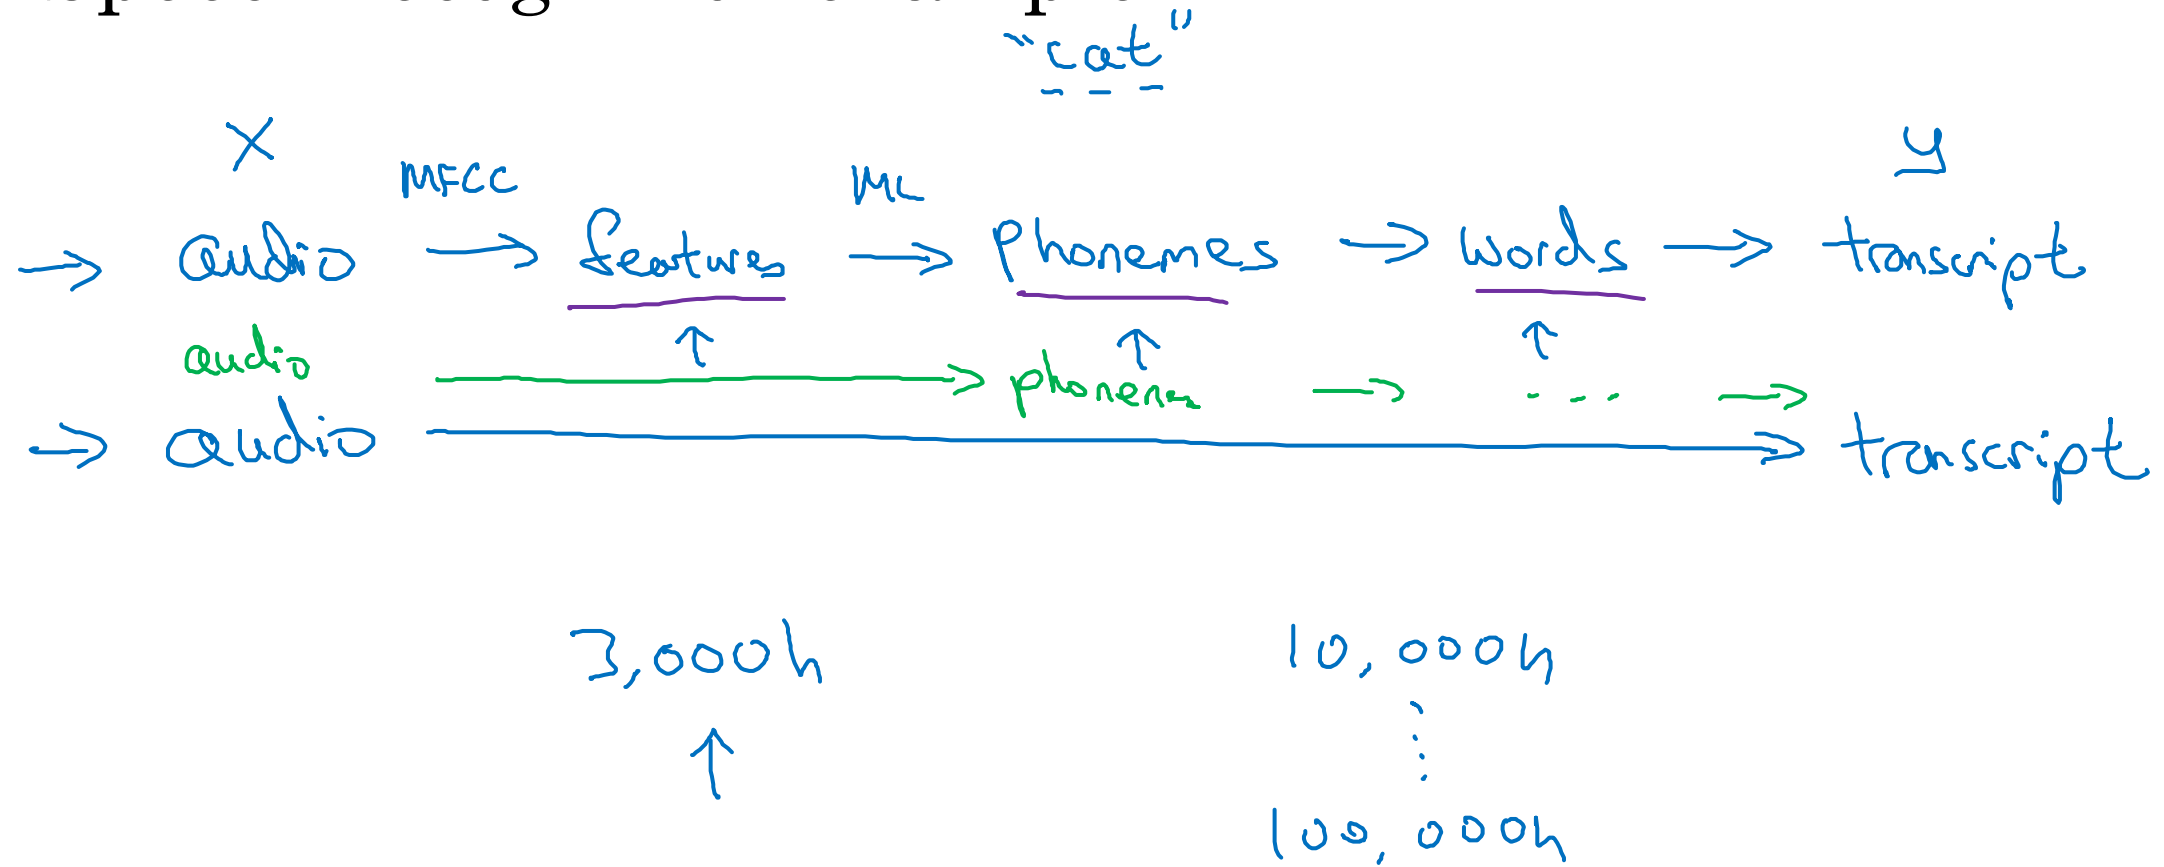 "cat"
x y
MFCC ML
→ audio → features → phonemes → words → transcript
audio → phonemes → ... →
→ audio → transcript
3,000h 10,000h
100,000h